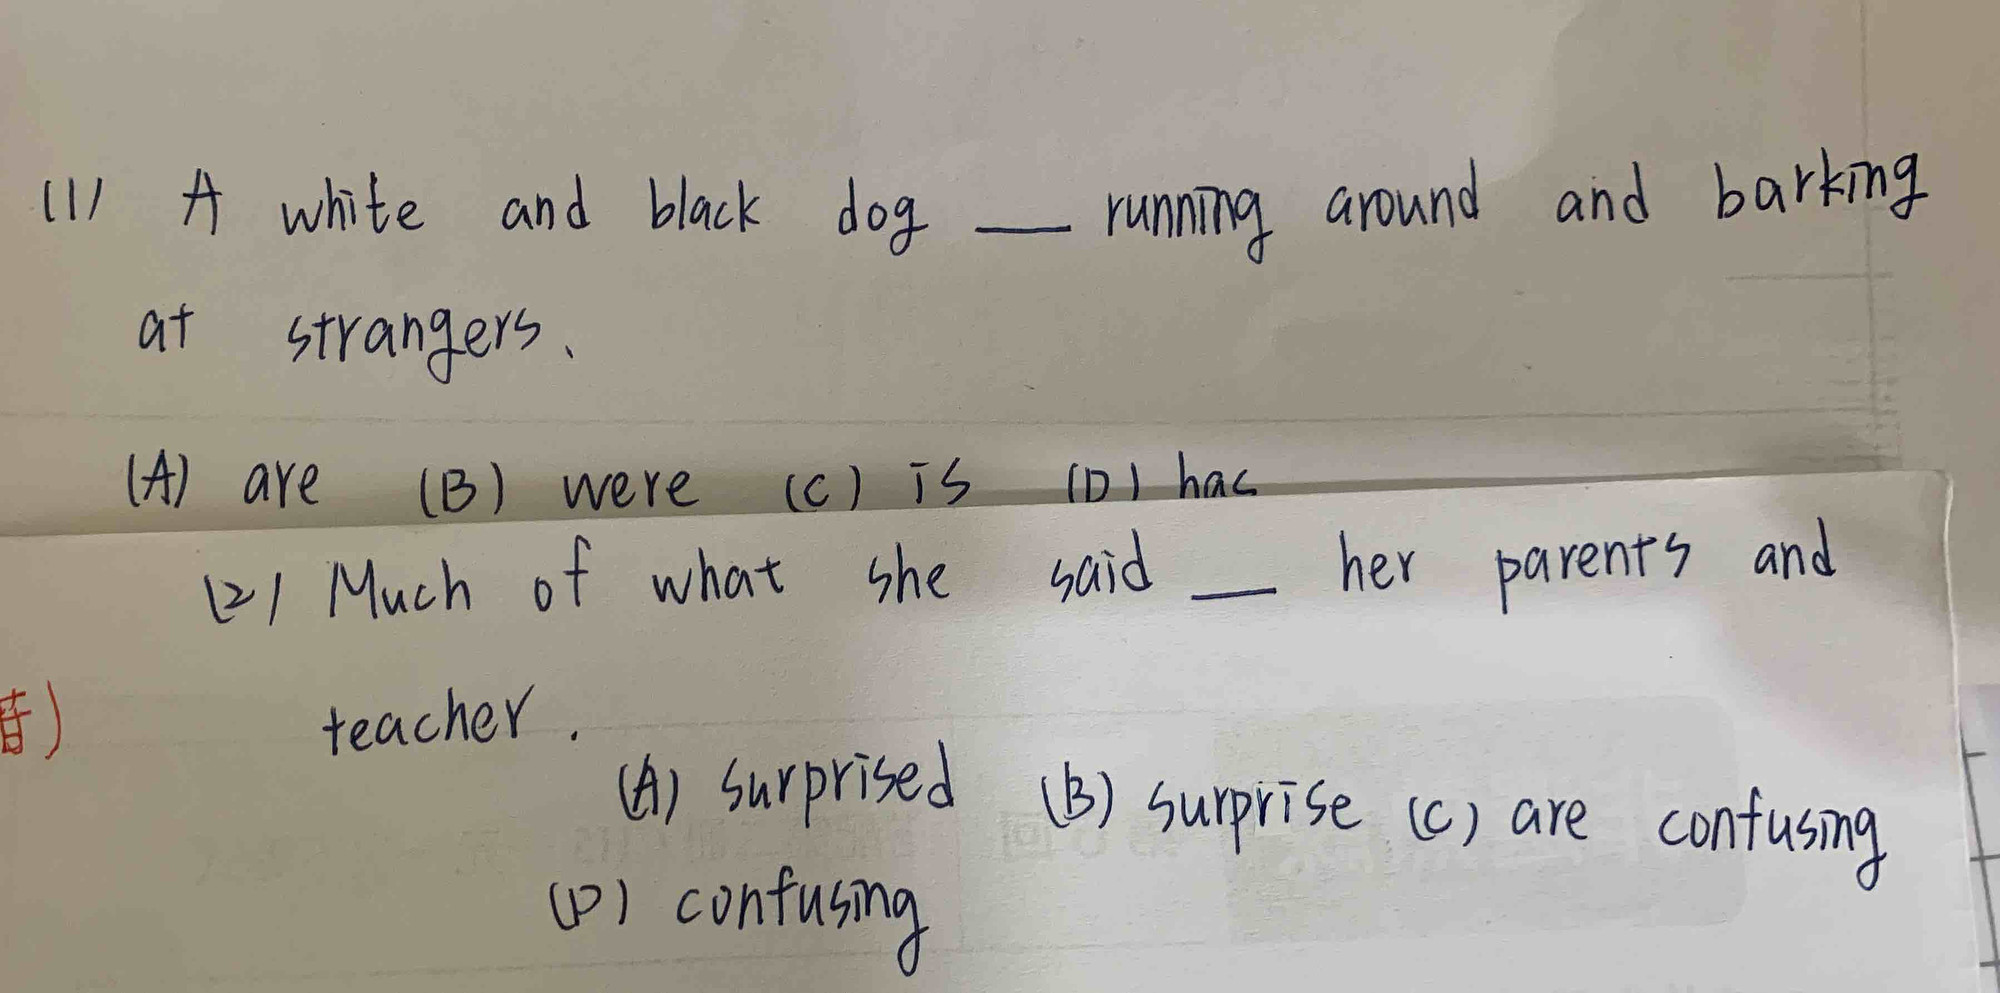 (1) A white and black dog __ running around and barking
at strangers.
(A) are (B) were (C) is (D) has
(2) Much of what she said __ her parents and
teacher.
(A) surprised (B) surprise (C) are confusing
(D) confusing